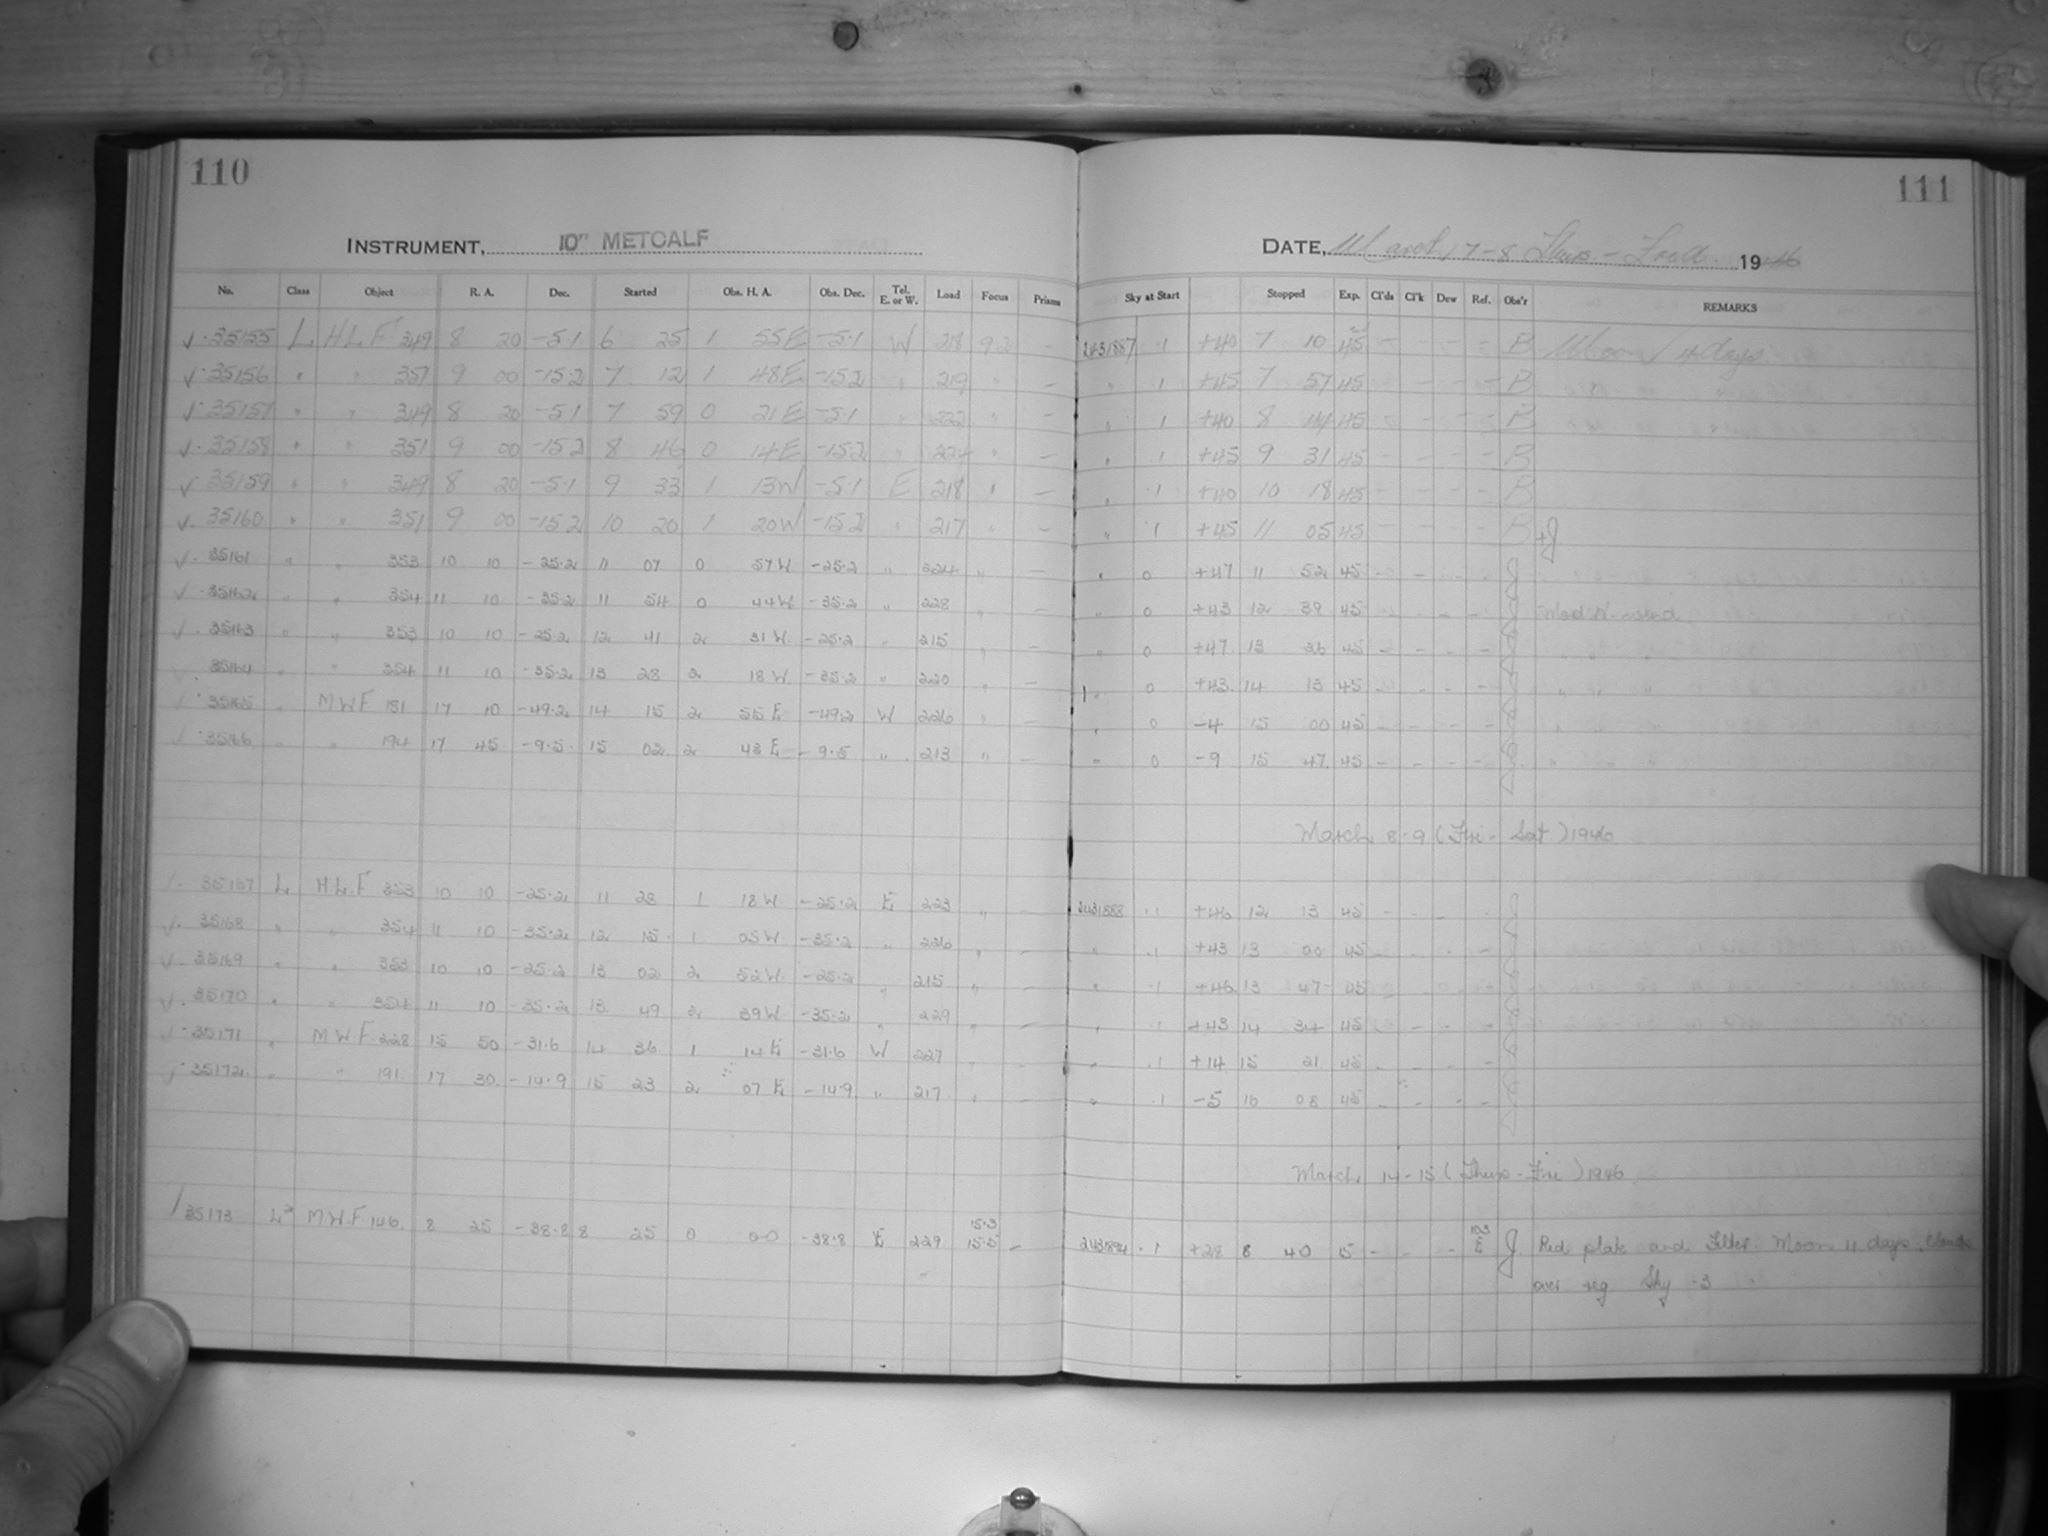 110
111
INSTRUMENT, 10" METCALF
DATE, March 7-8 Thurs - Frid. 1946
No. Class Object R. A. Dec. Started Obs. H. A. Obs. Dec. Tel. E. or W. Load Focus Prisms Sky at Start Stopped Exp. Cl'ds Cl'k Dew Ref. Obs'r REMARKS
√ · 35155 L HLF 349 8 20 -5.1 6 25 1 55E -5.1 W 218 9.2 - 2431887 .1 +40 7 10 45 - - - - B Moon 4 days
√ · 35156 " " 351 9 00 -15.2 7 12 1 48E -15.2 " 219 " - " .1 +45 7 57 45 - - - - B
√ · 35157 " " 349 8 20 -5.1 7 59 0 21E -5.1 " 222 " - " .1 +40 8 44 45 - - - - B
√ · 35158 " " 351 9 00 -15.2 8 46 0 14E -15.2 " 224 " - " .1 +45 9 31 45 - - - - B
√ · 35159 " " 349 8 20 -5.1 9 33 1 13W -5.1 E 218 " - " .1 +40 10 18 45 - - - - B
√ · 35160 " " 351 9 00 -15.2 10 20 1 20W -15.2 " 217 " - " .1 +45 11 05 45 - - - - B+J
√ · 35161 " " 353 10 10 -25.2 11 07 0 57W -25.2 " 224 " - " 0 +47 11 52 45 - - - - J
√ · 35162 " " 354 11 10 -35.2 11 54 0 44W -35.2 " 228 " - " 0 +43 12 39 45 - - - - J Mod. N. wind
√ · 35163 " " 353 10 10 -25.2 12 41 2 31W -25.2 " 215 " - " 0 +47 13 26 45 - - - - J " " "
√ · 35164 " " 354 11 10 -35.2 13 28 2 18W -35.2 " 220 " - " 0 +43 14 13 45 - - - - J " " "
√ · 35165 " MWF 181 17 10 -49.2 14 15 2 55E -49.2 W 226 " - " 0 -4 15 00 45 - - - - J " " "
√ · 35166 " " 194 17 45 -9.5 15 02 2 43E -9.5 " 213 " - " 0 -9 15 47 45 - - - - J " " "
March 8-9 (Fri - Sat) 1946
√ · 35167 L HLF 353 10 10 -25.2 11 28 1 18W -25.2 E 223 " - 2431888 .1 +46 12 13 45 - - - - J
√ · 35168 " " 354 11 10 -35.2 12 15 1 05W -35.2 " 226 " - " .1 +43 13 00 45 - - - - J
√ · 35169 " " 353 10 10 -25.2 13 02 2 52W -25.2 " 215 " - " .1 +46 13 47 45 - - - - J
√ · 35170 " " 354 11 10 -35.2 13 49 2 39W -35.2 " 229 " - " .1 +43 14 34 45 - - - - J
√ · 35171 " MWF 228 15 50 -31.6 14 36 1 14E -31.6 W 227 " - " .1 +14 15 21 45 - - - - J
√ · 35172 " " 191 17 30 -14.9 15 23 2 07E -14.9 " 217 " - " .1 -5 16 08 45 - - - - J
March 14-15 (Thurs - Fri) 1946
15.3
/ 35173 L² MWF 146 8 25 -38.8 8 25 0 00 -38.8 E 229 15.5 - .1 +28 8 40 15 - - - J Red plate and Filter. Moon 11 days. Clouds
over reg Sky .3